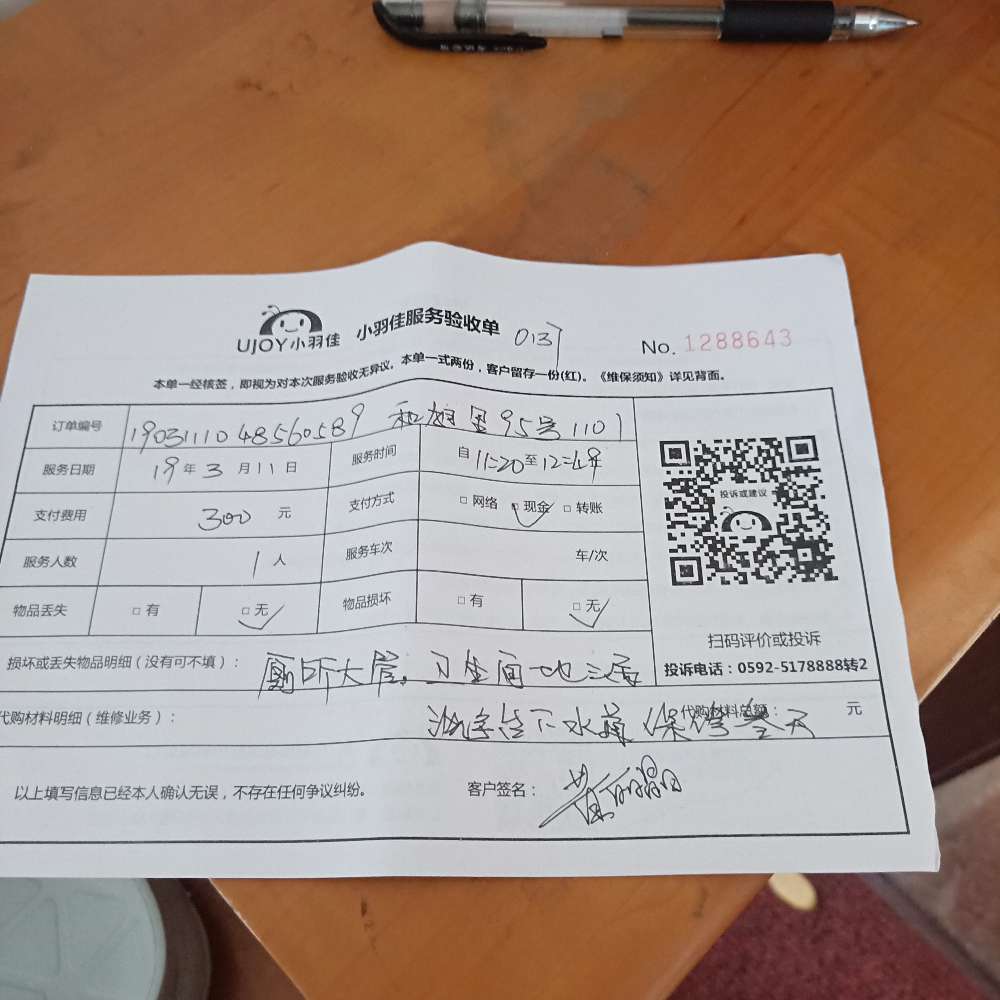 UJOY小羽佳 小羽佳服务验收单 0137 No. 1288643
本单一经核签，即视为对本次服务验收无异议。本单一式两份，客户留存一份(红)。《维保须知》详见背面。
订单编号 1903111048560589 95号1101
服务日期 19年3月11日 服务时间 自11:20至
支付费用 300元 支付方式 □网络 □现金 ✓ □转账
服务人数 1人 服务车次 车/次
物品丢失 □有 □无 ✓ 物品损坏 □有 □无 ✓
投诉或建议
扫码评价或投诉
投诉电话：0592-5178888转2
损坏或丢失物品明细（没有可不填）： 厕所大管. 卫生间地
代购材料明细（维修业务）： 代购材料总额： 元
下水 保修 天
以上填写信息已经本人确认无误，不存在任何争议纠纷。 客户签名： 黄